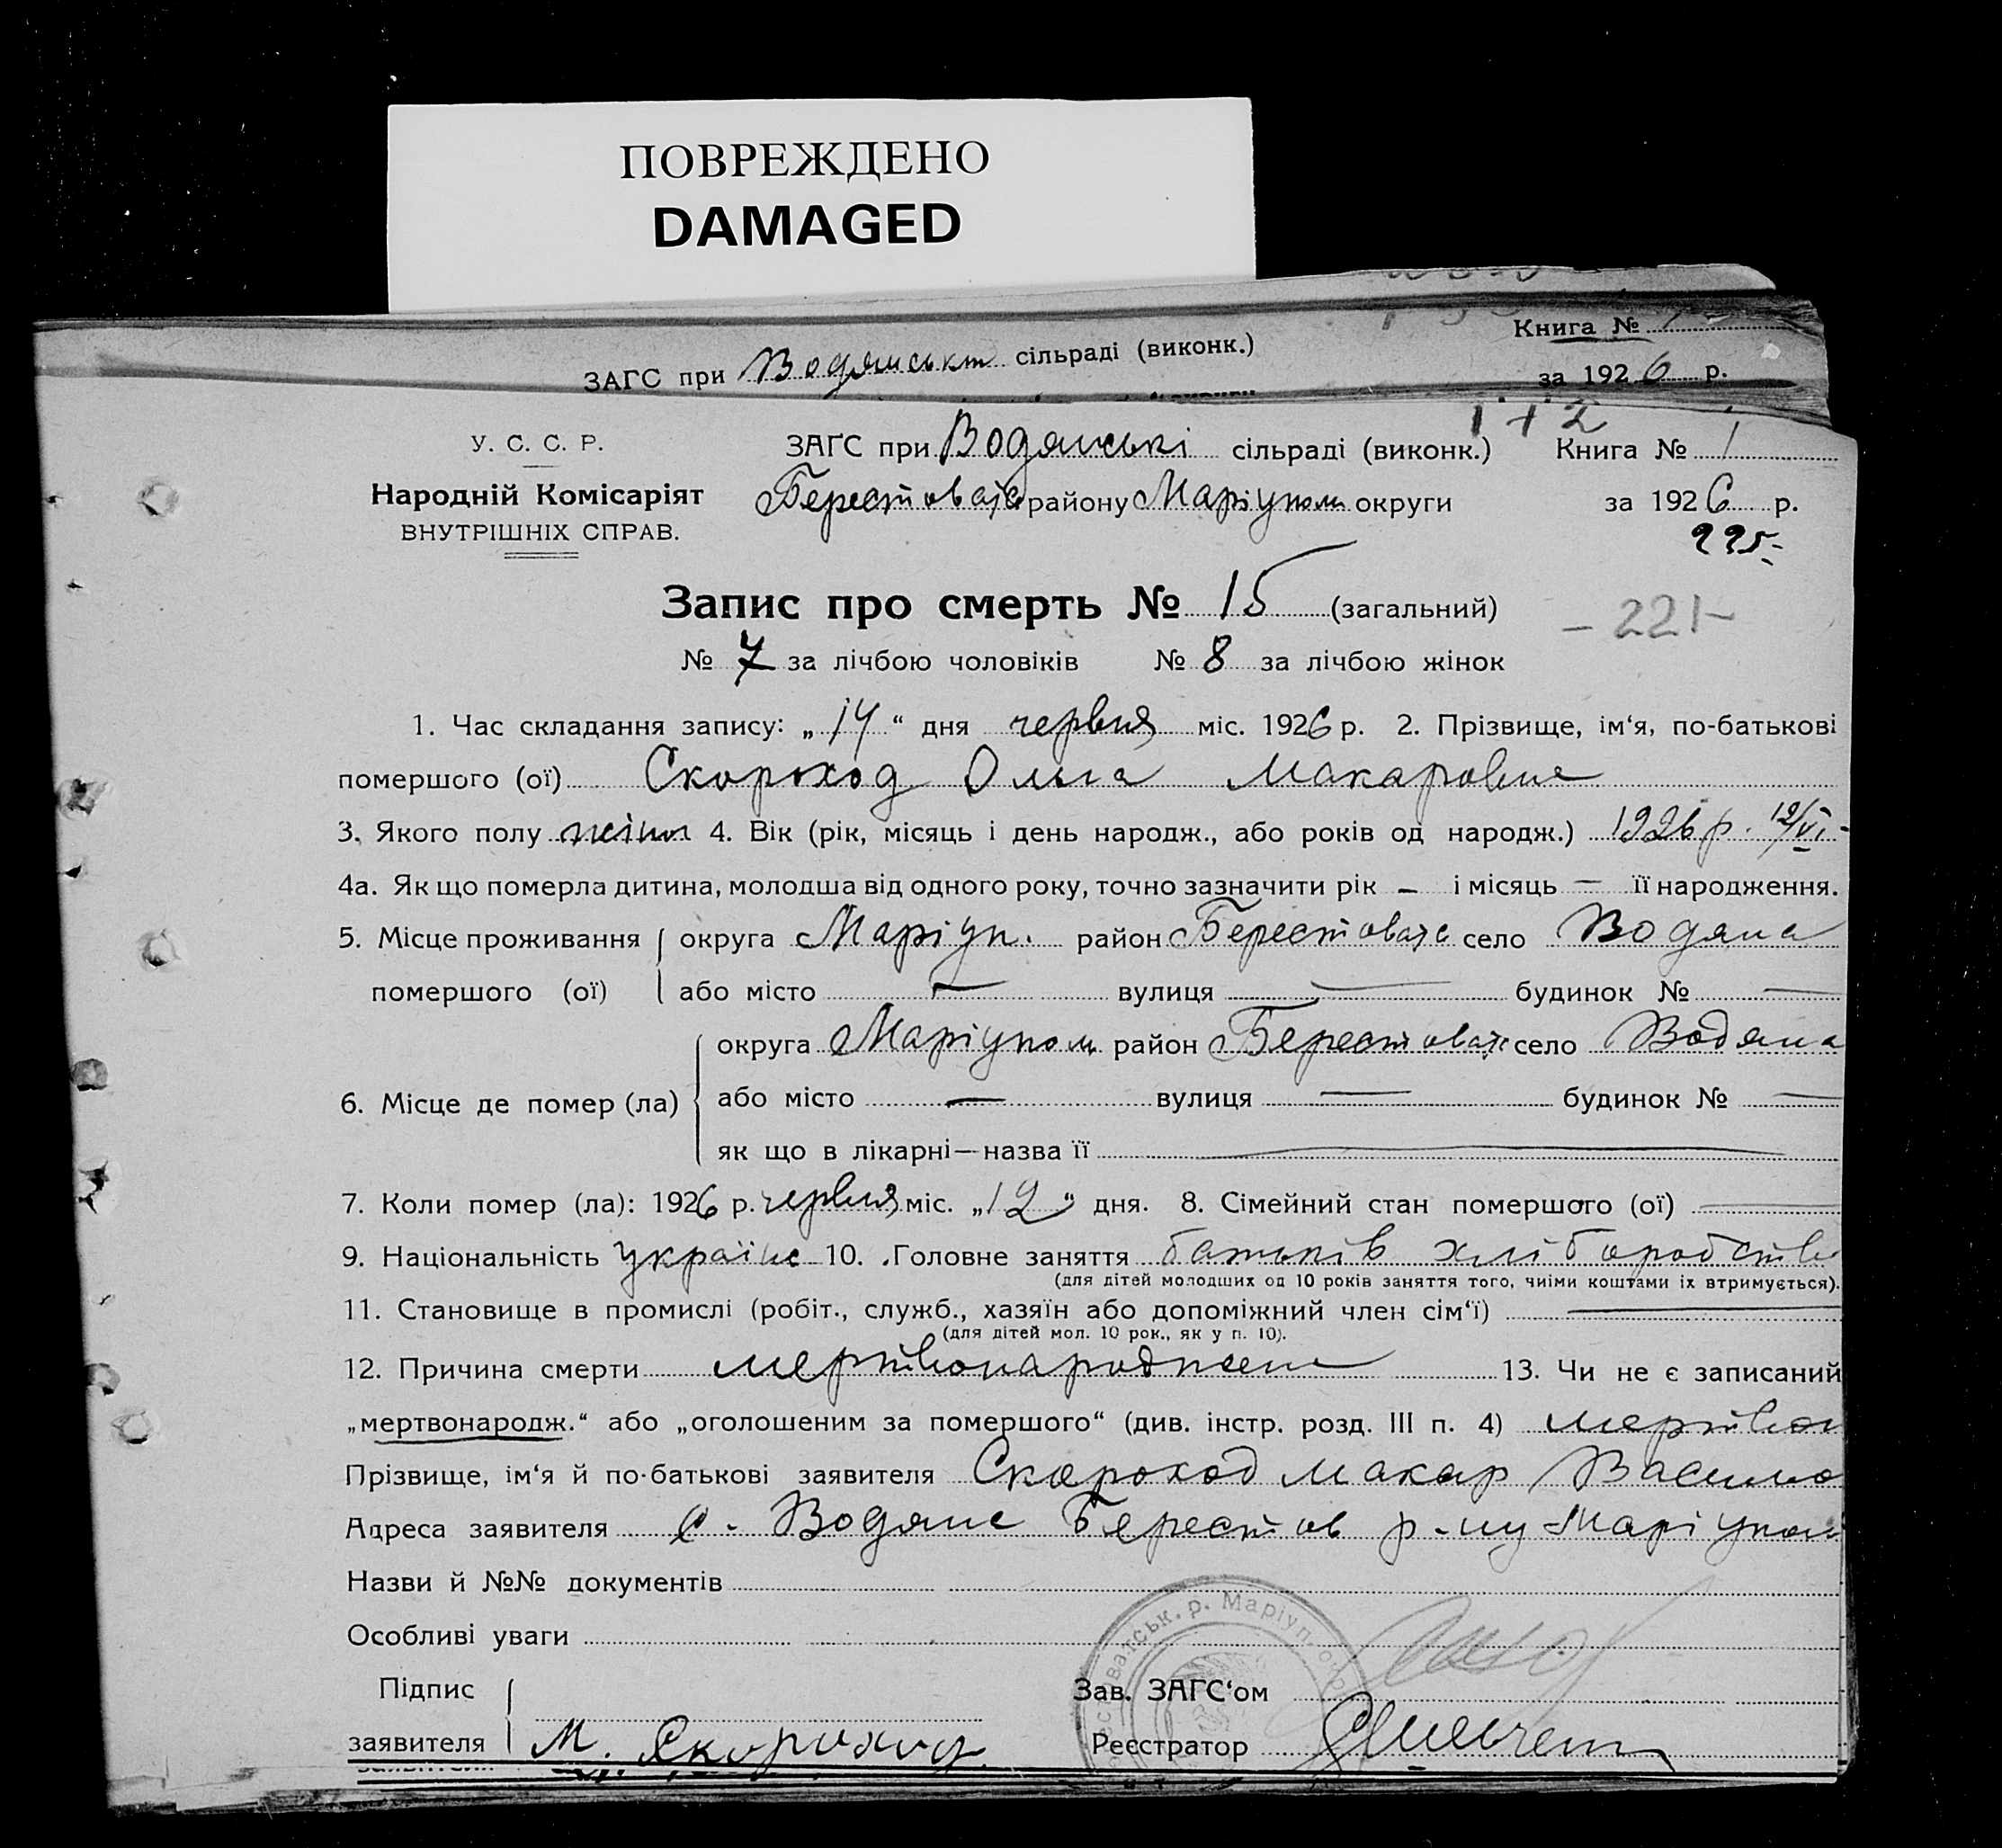 ПОВРЕЖДЕНО
DAMAGED
Книга №
ЗАГС при Водянськт сільраді (виконк.)
за 1926 р.
1+2
У. С. С. Р. ЗАГС при Водянські сільраді (виконк.) Книга № 1
Народній Комісаріят Берестоватс району Маріупол округи за 1926 р.
ВНУТРІШНІХ СПРАВ.
225-
Запис про смерть № 15 (загальний)
- 221-
№ 7 за лічбою чоловіків № 8 за лічбою жінок
1. Час складання запису: „14“ дня червня міс. 1926 р. 2. Прізвище, ім‘я, по-батькові
помершого (ої) Скороход Ольга Макаровна
3. Якого полу жіноч 4. Вік (рік, місяць і день народж., або років од народж.) 1926 р. 12/VI-
4а. Як що померла дитина, молодша від одного року, точно зазначити рік — і місяць — її народження.
5. Місце проживання округа Маріуп. район Берестоватс село Водяна
помершого (ої) або місто — вулиця — будинок № —
округа Маріупол район Берестоватс село Водяна
6. Місце де помер (ла) або місто — вулиця — будинок № —
як що в лікарні—назва її —
7. Коли помер (ла): 1926 р. червня міс. „12“ дня. 8. Сімейний стан помершого (ої) —
9. Національність україне 10. Головне заняття батьків хліборобство
(для дітей молодших од 10 років заняття того, чиїми коштами їх втримується).
11. Становище в промислі (робіт., служб., хазяїн або допоміжний член сім‘ї) —
(для дітей мол. 10 рок., як у п. 10).
12. Причина смерти мертвонароджен 13. Чи не є записаний
„мертвонародж.“ або „оголошеним за помершого“ (див. інстр. розд. III п. 4) мертвон
Прізвище, ім‘я й по-батькові заявителя Скороход Макар Василь
Адреса заявителя с. Водяне Берестов р-ну Маріупол
Назви й №№ документів
Особливі уваги
ватськ. р. Маріуп. окр
Підпис Зав. ЗАГС‘ом
заявителя М. Скороход Реєстратор